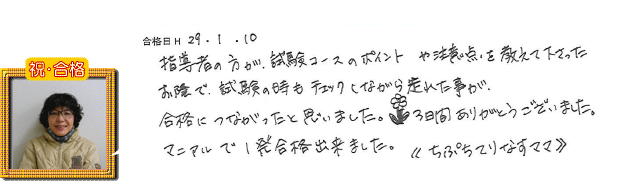 合格日 H 29・1・10
祝・合格
指導者の方が、試験コースのポイント や注意点を教えて下さった
お陰で、試験の時もチェックしながら走れた事が、
合格につながったと思いました。 3日間ありがとうございました。
マニアルで1発合格出来ました。 《ちぷちてりなすママ》